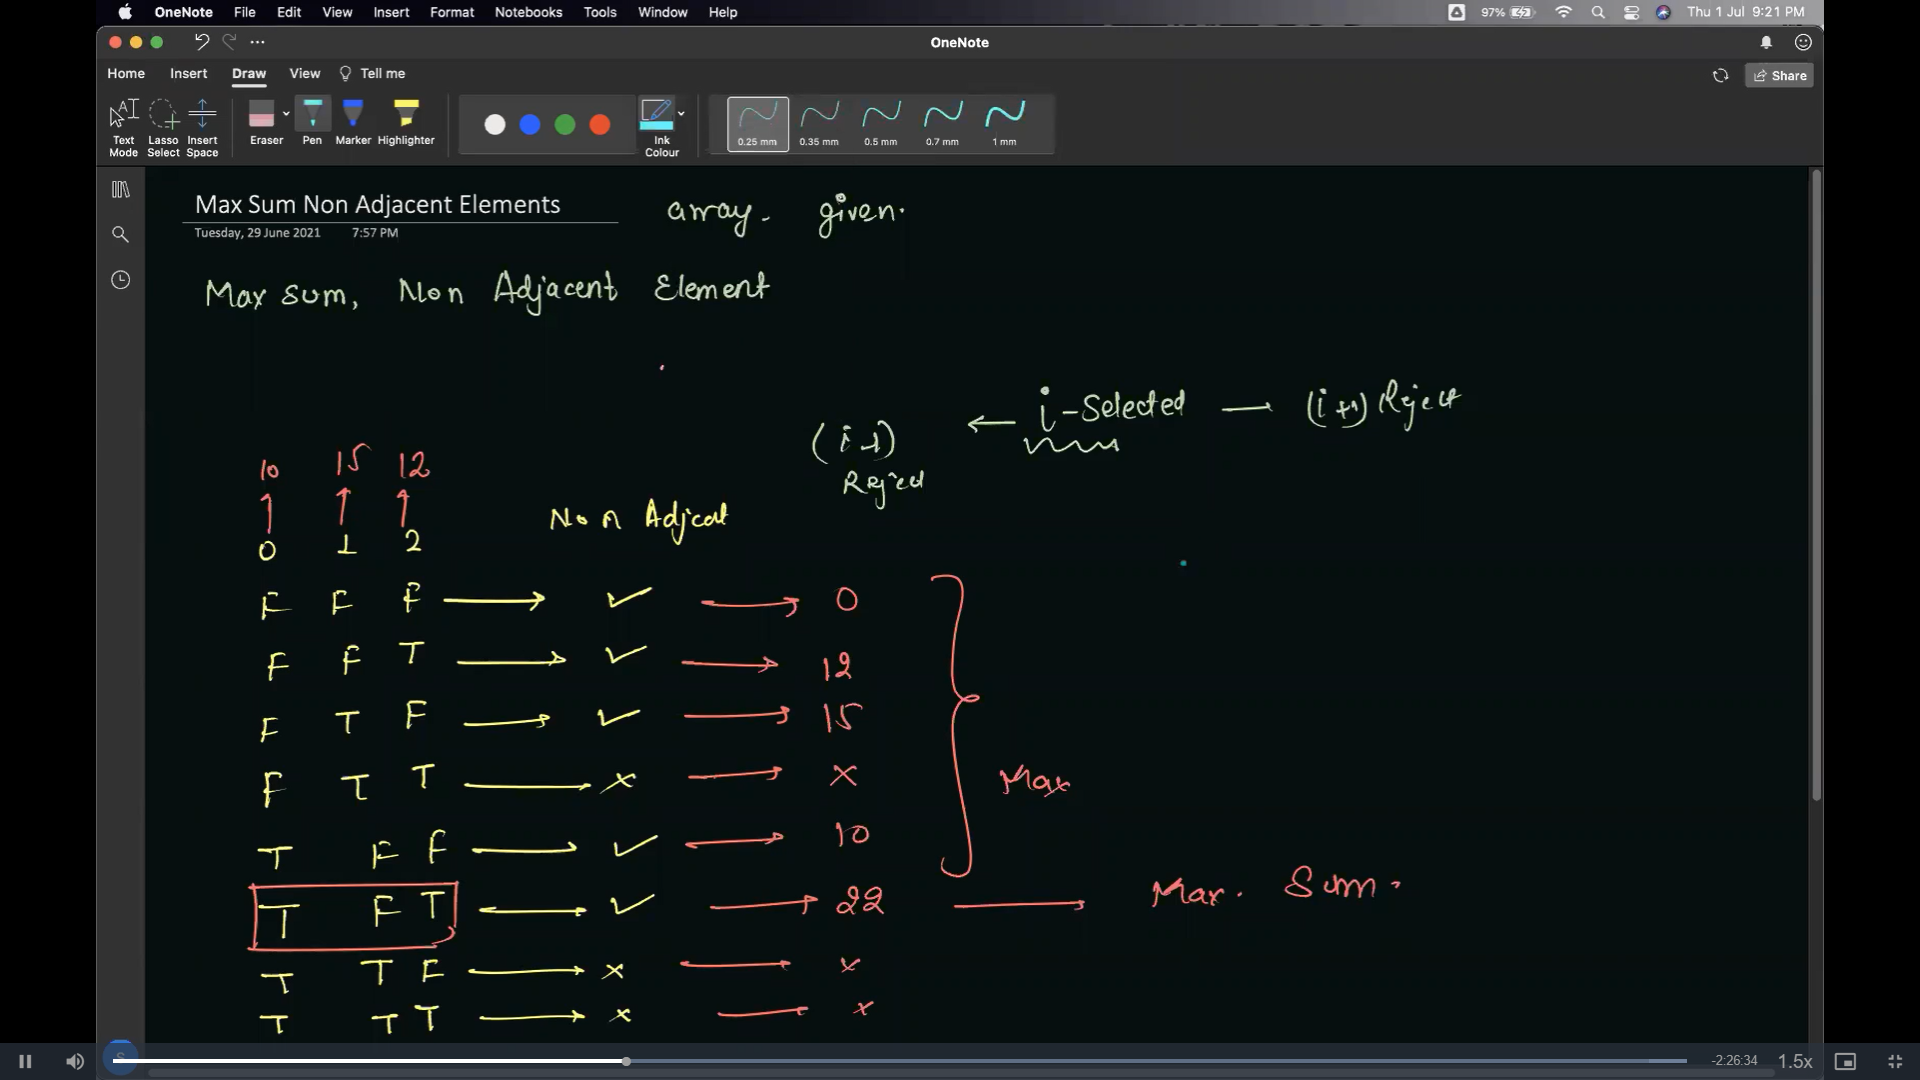 OneNote File Edit View Insert Format Notebooks Tools Window Help 97% Thu 1 Jul 9:21 PM
OneNote
Home Insert Draw View Tell me Share
Text Mode Lasso Select Insert Space Eraser Pen Marker Highlighter Ink Colour 0.25 mm 0.35 mm 0.5 mm 0.7 mm 1 mm
Max Sum Non Adjacent Elements array. given.
Tuesday, 29 June 2021 7:57 PM
Max sum, Non Adjacent Element
(i-1) ← i-Selected — (i+1) Reject
Reject
10 15 12
Non Adjcat
0 1 2
F F F → ✓ → 0
F F T → ✓ → 12
F T F → ✓ → 15
F T T → x → x
Max
T F F → ✓ → 10
T F T → ✓ → 22 → Max. Sum.
T T F → x → x
T T T → x → x
S -2:26:34 1.5x